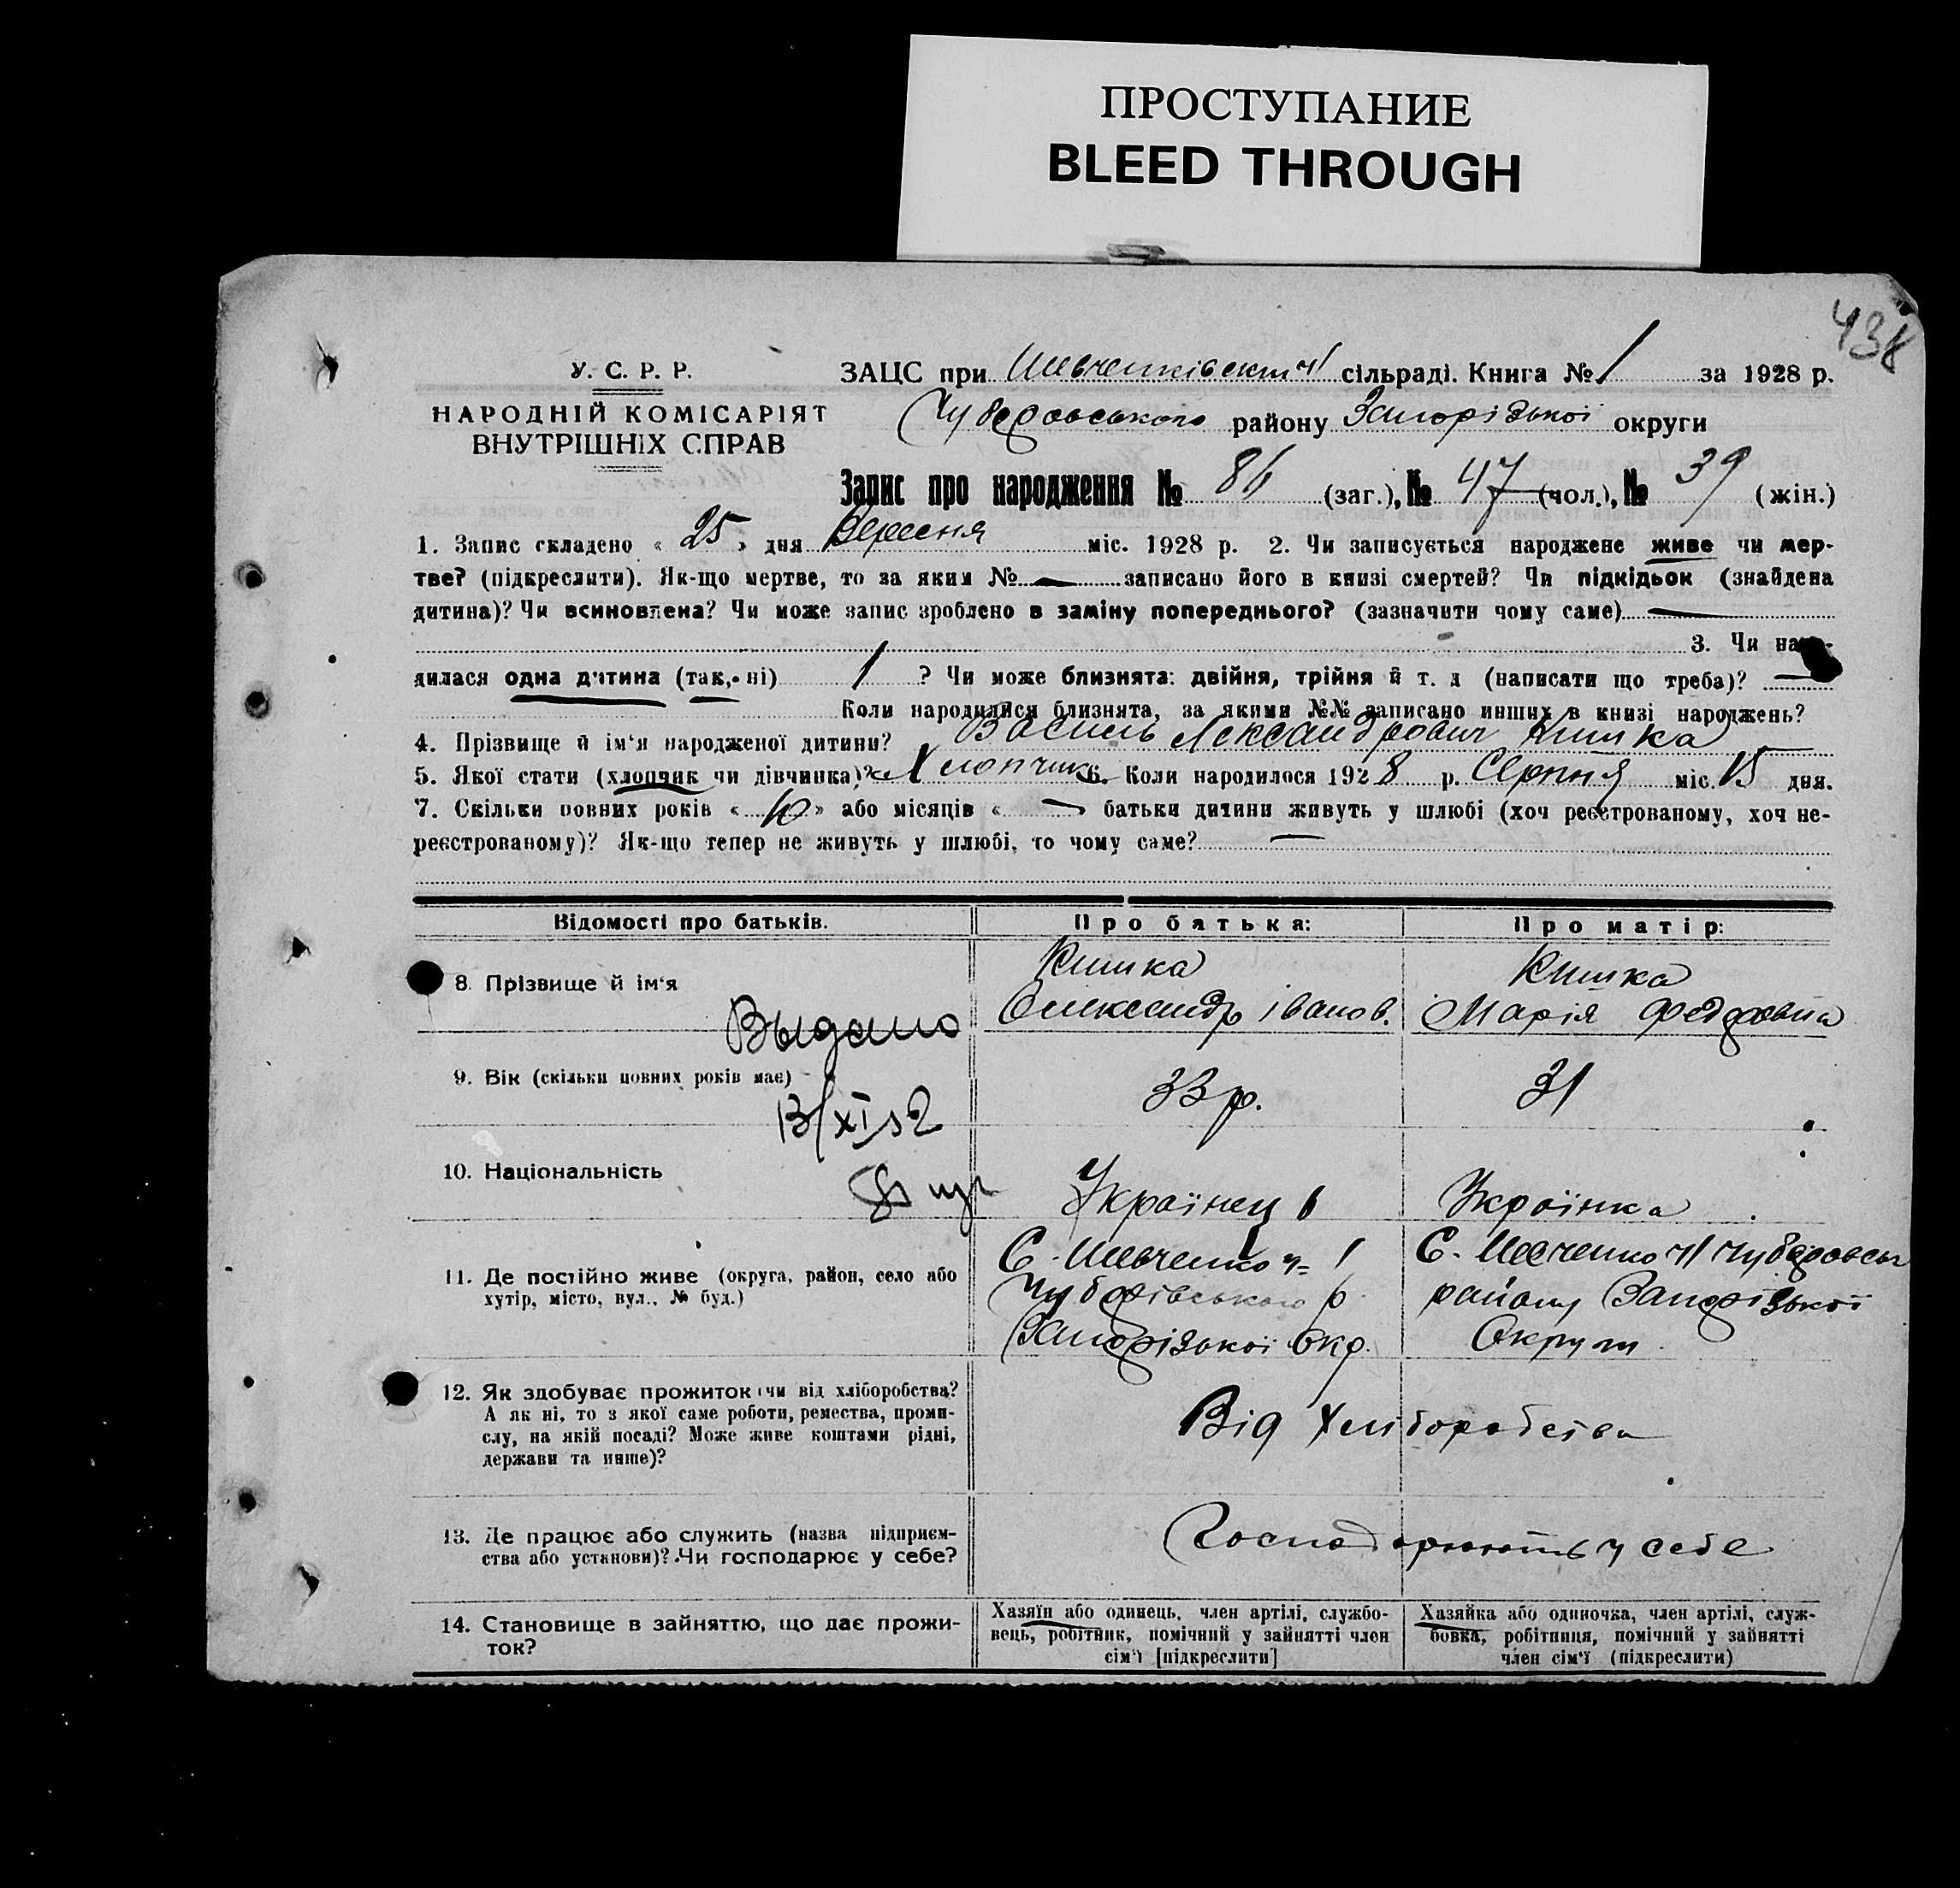 ПРОСТУПАНИЕ
BLEED THROUGH
438
У. С. Р. Р.
НАРОДНІЙ КОМІСАРІЯТ
ВНУТРІШНІХ СПРАВ
ЗАЦС при Шевченківскім ч1 сільраді. Книга № 1 за 1928 р.
Чубаровського району Запорізької округи
Запис про народження № 86 (заг.), № 47 (чол.), № 39 (жін.)
1. Запис складено « 25 » дня Вересня міс. 1928 р. 2. Чи записується народжене живе чи мер-
тве? (підкреслити). Як-що мертве, то за яким № — записано його в книзі смертей? Чи підкідьок (знайдена
дитина)? Чи всиновлена? Чи може запис зроблено в заміну попереднього? (зазначити чому саме) —
3. Чи наро-
дилася одна дитина (так, ні) 1 ? Чи може близнята: двійня, трійня й т. д (написати що треба)? —
Коли народилися близнята, за якими №№ записано инших в книзі народжень?
4. Прізвище й ім'я народженої дитини? Василь Лександрович Кишка
5. Якої стати (хлопчик чи дівчинка)? Хлопчик 6. Коли народилося 1928 р. Серпня міс. 15 дня.
7. Скільки повних років « 10 » або місяців « — » батьки дитини живуть у шлюбі (хоч реєстрованому, хоч не-
реєстрованому)? Як-що тепер не живуть у шлюбі, то чому саме? —
Відомості про батьків. Про батька: Про матір:
8. Прізвище й ім'я Кишка Олександр іванов. Кишка Марія Федоровна
Выдано
9. Вік (скільки повних років має) 33 р. 31
13/XI 52
10. Національність Українец Українка
11. Де постійно живе (округа, район, село або
хутір, місто, вул., № буд.)
С. Шевченко ч= 1
Чубарівського р.
Запорізької Окр.
С. Шевченко ч1 Чубаровськ
району Запорізької
Округи
12. Як здобуває прожиток (чи від хліборобства?
А як ні, то з якої саме роботи, ремества, проми-
слу, на якій посаді? Може живе коштами рідні,
держави та инше)?
Від Хліборобства
13. Де працює або служить (назва підприєм-
ства або установи)? Чи господарює у себе?
Господарюють у себе
14. Становище в зайняттю, що дає прожи-
ток?
Хазяїн або одинець, член артілі, службо-
вець, робітник, помічний у зайнятті член
сім'ї [підкреслити]
Хазяйка або одиночка, член артілі, служ-
бовка, робітниця, помічний у зайнятті
член сім'ї (підкреслити)